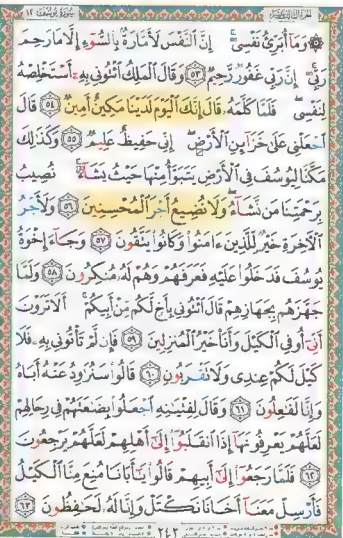 الجزء الثالث عشر
سورة يوسف ١٢
۞ وَمَآ أُبَرِّئُ نَفْسِىٓ ۚ إِنَّ ٱلنَّفْسَ لَأَمَّارَةٌۢ بِٱلسُّوٓءِ إِلَّا مَا رَحِمَ
رَبِّىٓ ۚ إِنَّ رَبِّى غَفُورٌ رَّحِيمٌ ٥٣ وَقَالَ ٱلْمَلِكُ ٱئْتُونِى بِهِۦٓ أَسْتَخْلِصْهُ
لِنَفْسِى ۖ فَلَمَّا كَلَّمَهُۥ قَالَ إِنَّكَ ٱلْيَوْمَ لَدَيْنَا مَكِينٌ أَمِينٌ ٥٤ قَالَ
ٱجْعَلْنِى عَلَىٰ خَزَآئِنِ ٱلْأَرْضِ ۖ إِنِّى حَفِيظٌ عَلِيمٌ ٥٥ وَكَذَٰلِكَ
مَكَّنَّا لِيُوسُفَ فِى ٱلْأَرْضِ يَتَبَوَّأُ مِنْهَا حَيْثُ يَشَآءُ ۚ نُصِيبُ
بِرَحْمَتِنَا مَن نَّشَآءُ ۖ وَلَا نُضِيعُ أَجْرَ ٱلْمُحْسِنِينَ ٥٦ وَلَأَجْرُ
ٱلْـَٔاخِرَةِ خَيْرٌ لِّلَّذِينَ ءَامَنُوا۟ وَكَانُوا۟ يَتَّقُونَ ٥٧ وَجَآءَ إِخْوَةُ
يُوسُفَ فَدَخَلُوا۟ عَلَيْهِ فَعَرَفَهُمْ وَهُمْ لَهُۥ مُنكِرُونَ ٥٨ وَلَمَّا
جَهَّزَهُم بِجَهَازِهِمْ قَالَ ٱئْتُونِى بِأَخٍ لَّكُم مِّنْ أَبِيكُمْ ۚ أَلَا تَرَوْنَ
أَنِّىٓ أُوفِى ٱلْكَيْلَ وَأَنَا۠ خَيْرُ ٱلْمُنزِلِينَ ٥٩ فَإِن لَّمْ تَأْتُونِى بِهِۦ فَلَا
كَيْلَ لَكُمْ عِندِى وَلَا تَقْرَبُونِ ٦٠ قَالُوا۟ سَنُرَٰوِدُ عَنْهُ أَبَاهُ
وَإِنَّا لَفَٰعِلُونَ ٦١ وَقَالَ لِفِتْيَٰنِهِ ٱجْعَلُوا۟ بِضَٰعَتَهُمْ فِى رِحَالِهِمْ
لَعَلَّهُمْ يَعْرِفُونَهَآ إِذَا ٱنقَلَبُوٓا۟ إِلَىٰٓ أَهْلِهِمْ لَعَلَّهُمْ يَرْجِعُونَ
٦٢ فَلَمَّا رَجَعُوٓا۟ إِلَىٰٓ أَبِيهِمْ قَالُوا۟ يَٰٓأَبَانَا مُنِعَ مِنَّا ٱلْكَيْلُ
فَأَرْسِلْ مَعَنَآ أَخَانَا نَكْتَلْ وَإِنَّا لَهُۥ لَحَٰفِظُونَ ٦٣
٢٤٢